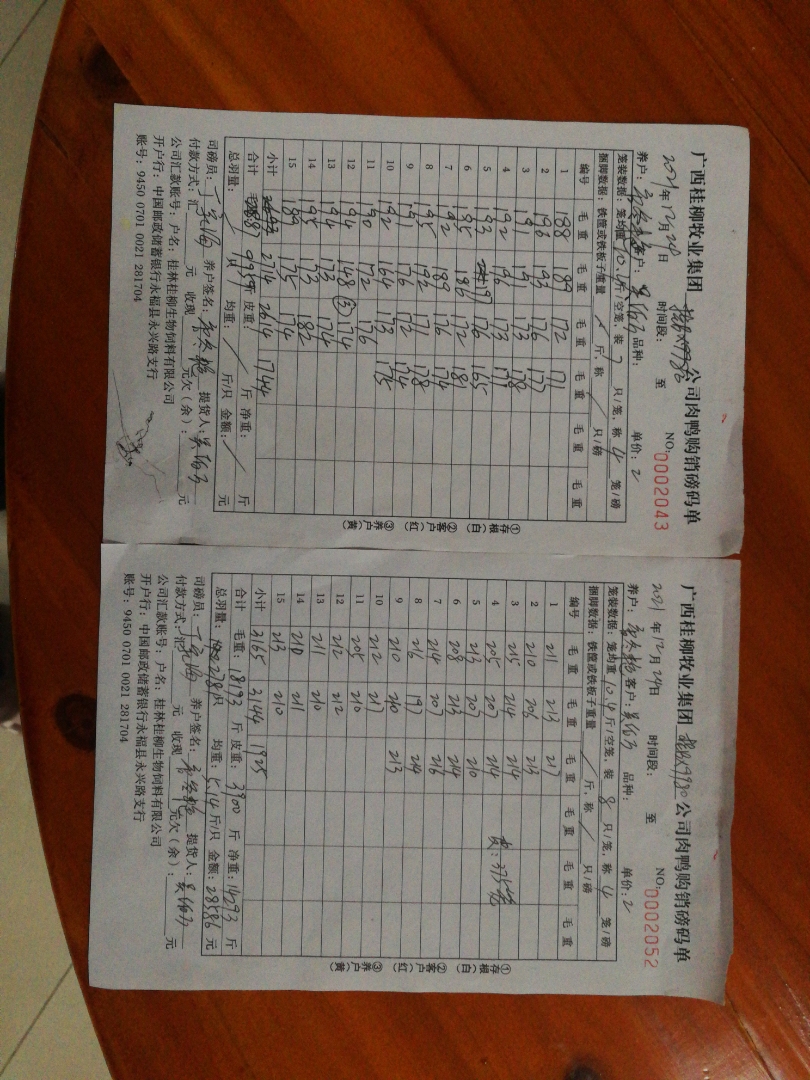 广西桂柳牧业集团 公司肉鸭购销磅码单
2021年12月24日 时间段: 至 NO:0002043
养户: 客户: 品种: 单价: 2
笼装数据: 笼均重 斤/空笼, 装 7 只/笼, 称 4 笼/磅
捆脚数据: 铁筐或铁板子重量 斤, 称 只/磅
编号 毛重 毛重 毛重 毛重 毛重 毛重
1 188 189 172 171
2 193 176 177
3 191 173 178
4 192 173 171
5 193 176 165
6 195 186 172 181
7 192 189 176 174
8 195 192 171 178
9 191 164 173 174
10 192 176 175
11 190 172 176
12 194 148 ② 174
13 194 173 174
14 195 173 182
15 189 175 174
小计 2714 2614 1744
合计 毛重: 斤 皮重: 斤 净重: 斤
总羽量: 只 均重: 斤/只 金额: 元
司磅员: 养户签名: 提货人:
付款方式: 汇 元 收现 元欠(余): 元
公司汇款账号: 户名: 桂林桂柳生物饲料有限公司
开户行: 中国邮政储蓄银行永福县永兴路支行
账号: 9450 0701 0021 281704
①存根(白) ②客户(红) ③养户(黄)
广西桂柳牧业集团 公司肉鸭购销磅码单
2021年12月24日 时间段: 至 NO:0002052
养户: 客户: 品种: 单价: 2
笼装数据: 笼均重 10.4 斤/空笼, 装 8 只/笼, 称 4 笼/磅
捆脚数据: 铁筐或铁板子重量 斤, 称 只/磅
编号 毛重 毛重 毛重 毛重 毛重 毛重
1 211 213 217
2 210 206 213
3 215 214 214
4 205 207 214
5 213 207 210
6 208 213 214
7 214 207 216
8 216 197 214
9 210 210 213
10 212 217
11 205 210
12 212 212
13 211 210
14 210 211
15 213 210
小计 3165 3144 1925
合计 毛重: 18193 斤 皮重: 3900 斤 净重: 14293 斤
总羽量: 2781只 均重: 5.14 斤/只 金额: 28586 元
司磅员: 养户签名: 提货人:
付款方式: 汇 元 收现 元欠(余): 元
公司汇款账号: 户名: 桂林桂柳生物饲料有限公司
开户行: 中国邮政储蓄银行永福县永兴路支行
账号: 9450 0701 0021 281704
①存根(白) ②客户(红) ③养户(黄)